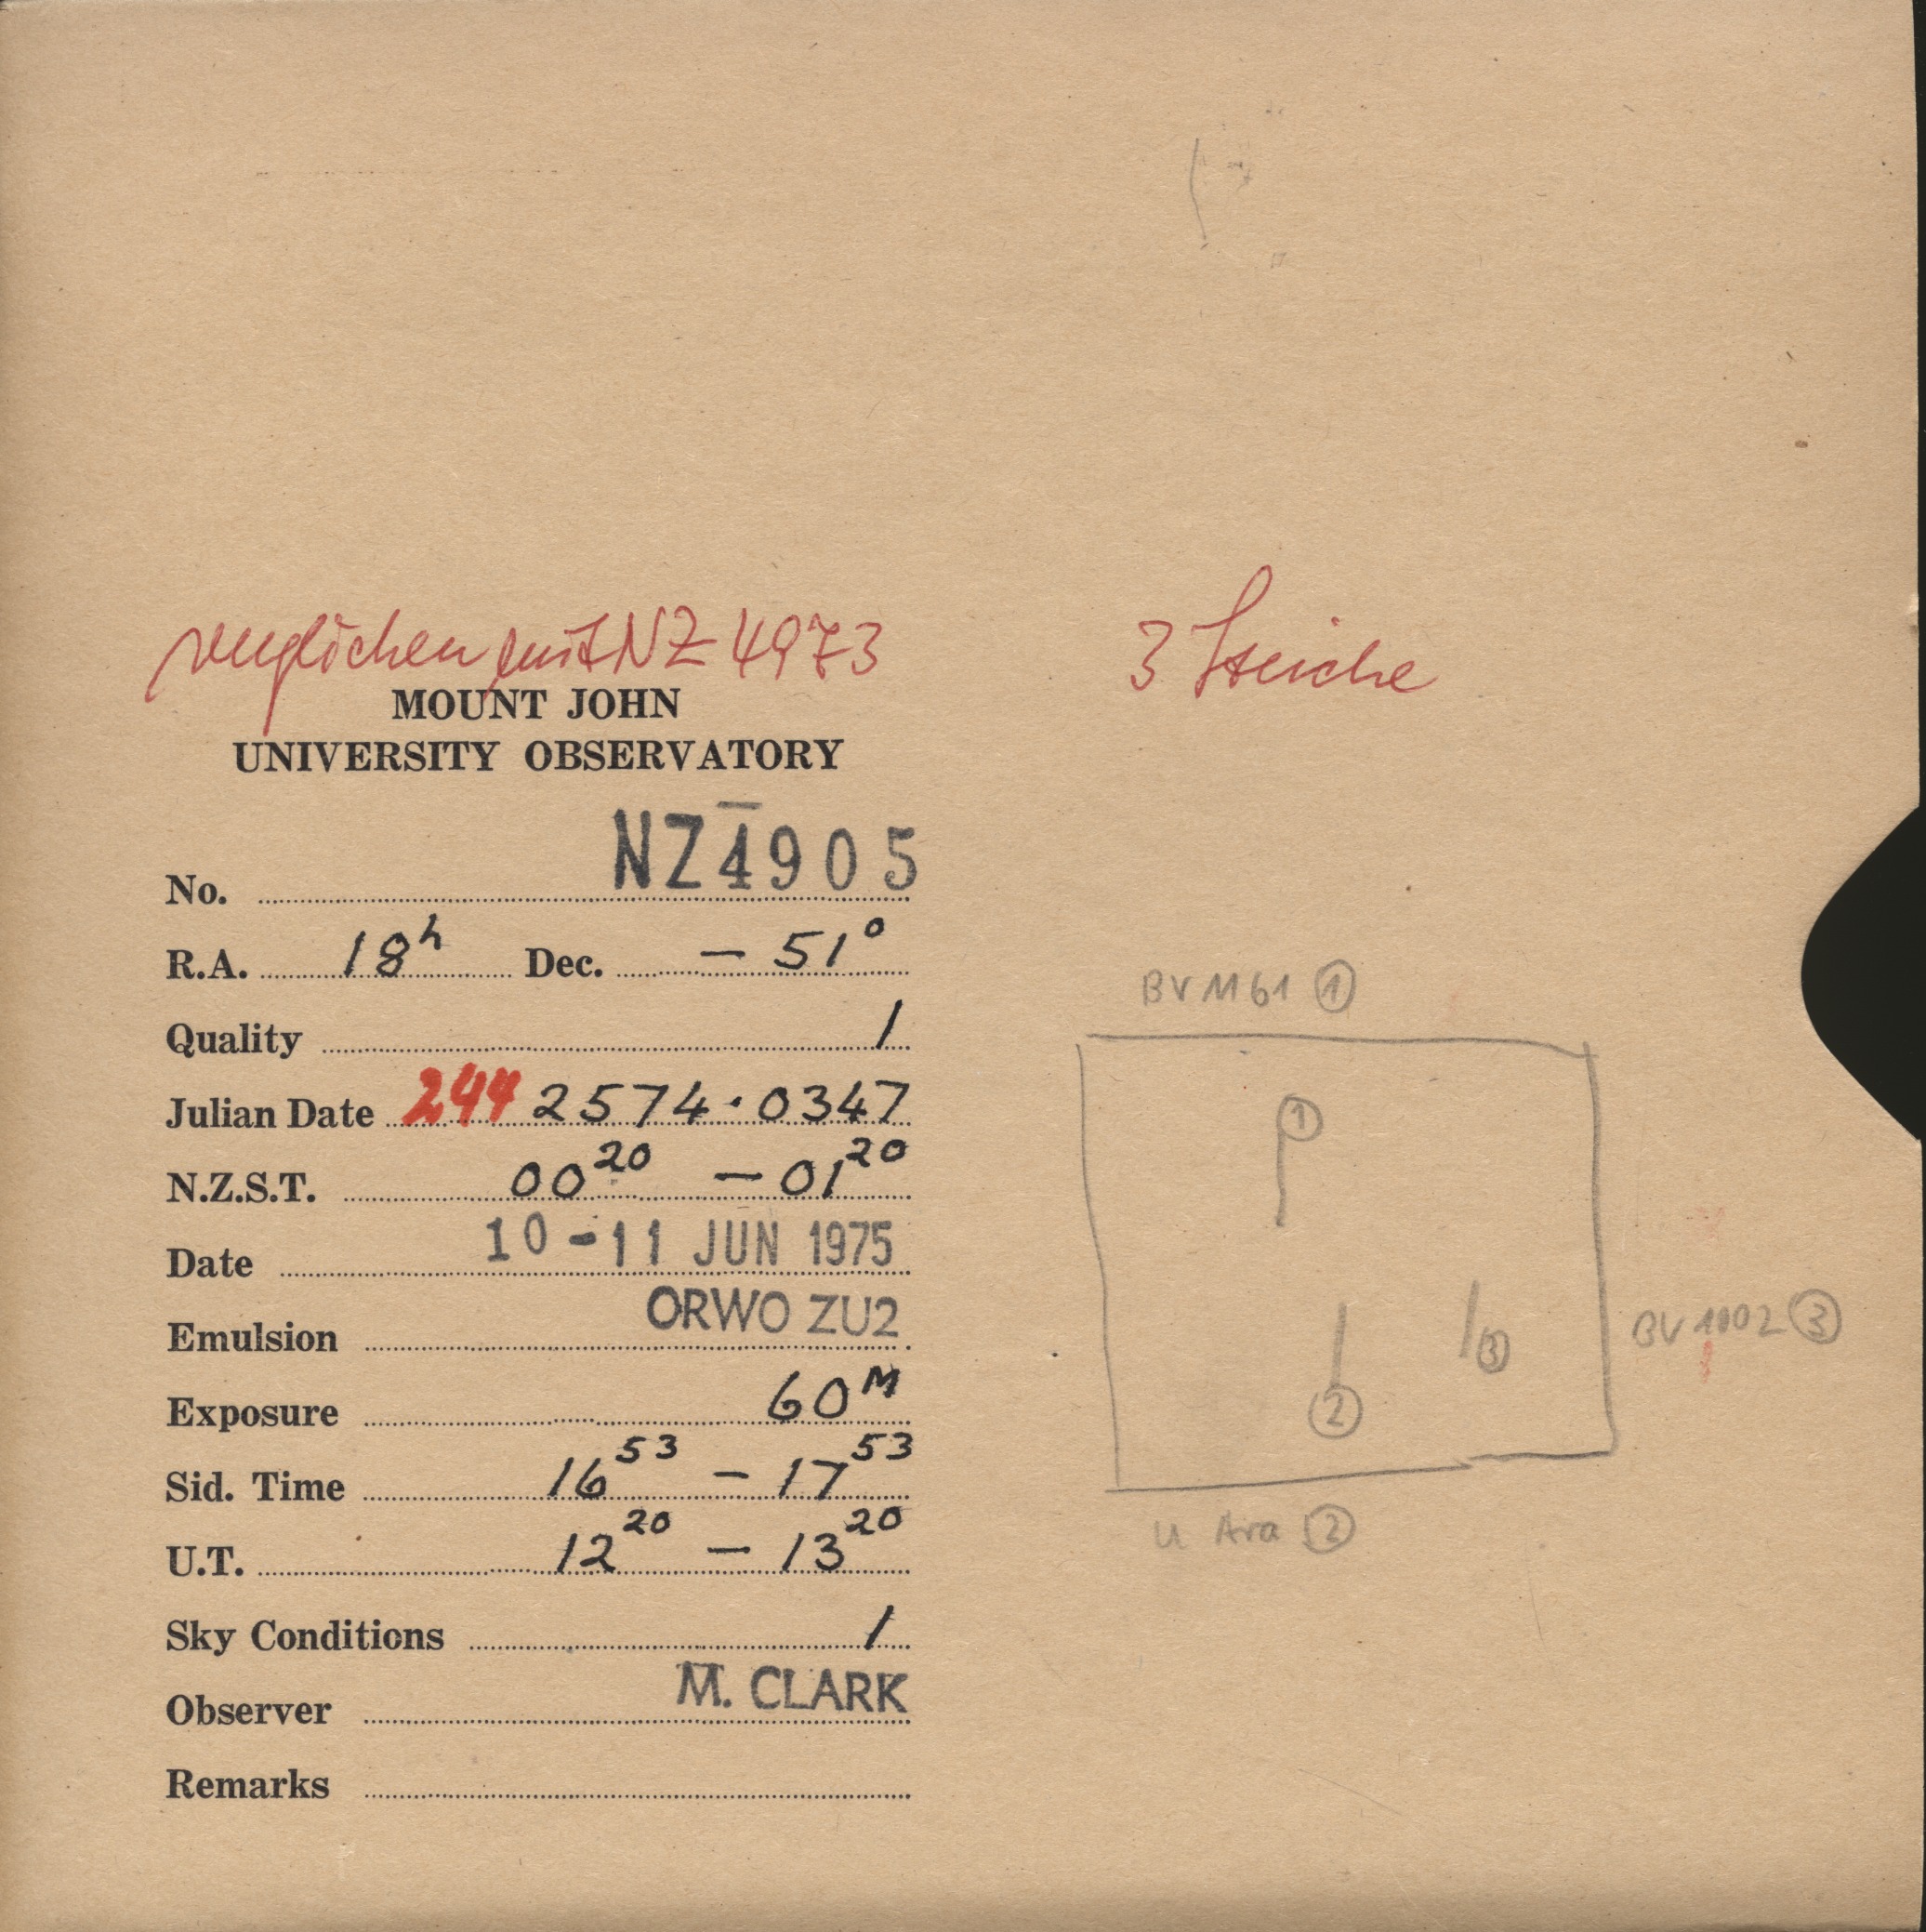 verglichen mit NZ 4973
3 Striche
MOUNT JOHN
UNIVERSITY OBSERVATORY
No. NZ4905
R.A. 18h Dec. – 51°
Quality 1
Julian Date 244 2574.0347
N.Z.S.T. 00 20 – 01 20
Date 10-11 JUN 1975
Emulsion ORWO ZU2
Exposure 60M
Sid. Time 16 53 – 17 53
U.T. 12 20 – 13 20
Sky Conditions 1
Observer M. CLARK
Remarks
BV 1161 ①
①
③
②
BV 1002 ③
U Ara ②